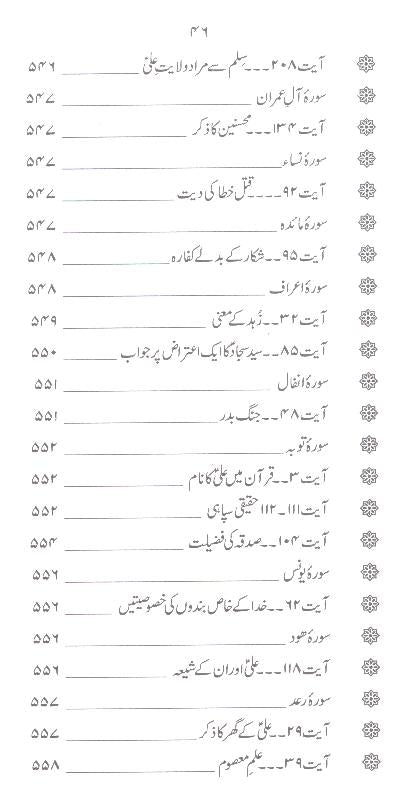 ۴۶
آیت ۲۰۸۔۔۔سِلم سے مراد ولایتِ علیؑ ۵۴۶
سورۂ آلِ عمران ۵۴۷
آیت ۱۳۴۔۔۔محسنین کا ذکر ۵۴۷
سورۂ نساء ۵۴۷
آیت ۹۲۔۔۔۔قتلِ خطا کی دیت ۵۴۷
سورۂ مائدہ ۵۴۷
آیت ۹۵۔۔شکار کے بدلے کفارہ ۵۴۸
سورۂ اعراف ۵۴۸
آیت ۳۲۔۔زُہد کے معنی ۵۴۹
آیت ۸۵۔۔سید سجادؑ کا ایک اعتراض پر جواب ۵۵۰
سورۂ انفال ۵۵۱
آیت ۴۸۔۔جنگ بدر ۵۵۱
سورۂ توبہ ۵۵۲
آیت ۳۔۔قرآن میں علیؑ کا نام ۵۵۲
آیت ۱۱۱۔۱۱۲ حقیقی سپاہی ۵۵۲
آیت ۱۰۴۔۔صدقہ کی فضیلت ۵۵۴
سورۂ یونس ۵۵۶
آیت ۶۲۔۔خدا کے خاص بندوں کی خصوصیتیں ۵۵۶
سورۂ ھود ۵۵۶
آیت ۱۱۸۔۔۔علیؑ اور ان کے شیعہ ۵۵۶
سورۂ رعد ۵۵۷
آیت ۲۹۔۔علیؑ کے گھر کا ذکر ۵۵۷
آیت ۳۹۔۔۔علمِ معصوم ۵۵۸